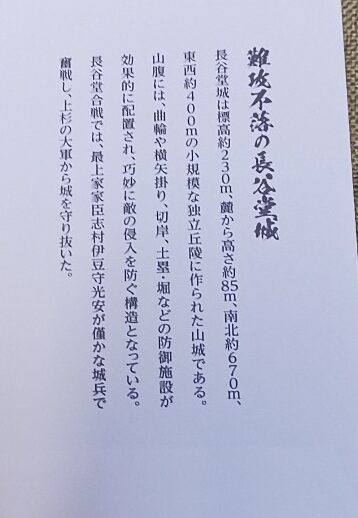 難攻不落の長谷堂城
長谷堂城は標高約230m、麓から高さ約85m、南北約670m、
東西約400mの小規模な独立丘陵に作られた山城である。
山腹には、曲輪や横矢掛り、切岸、土塁・堀などの防御施設が
効果的に配置され、巧妙に敵の侵入を防ぐ構造となっている。
長谷堂合戦では、最上家家臣志村伊豆守光安が僅かな城兵で
奮戦し、上杉の大軍から城を守り抜いた。